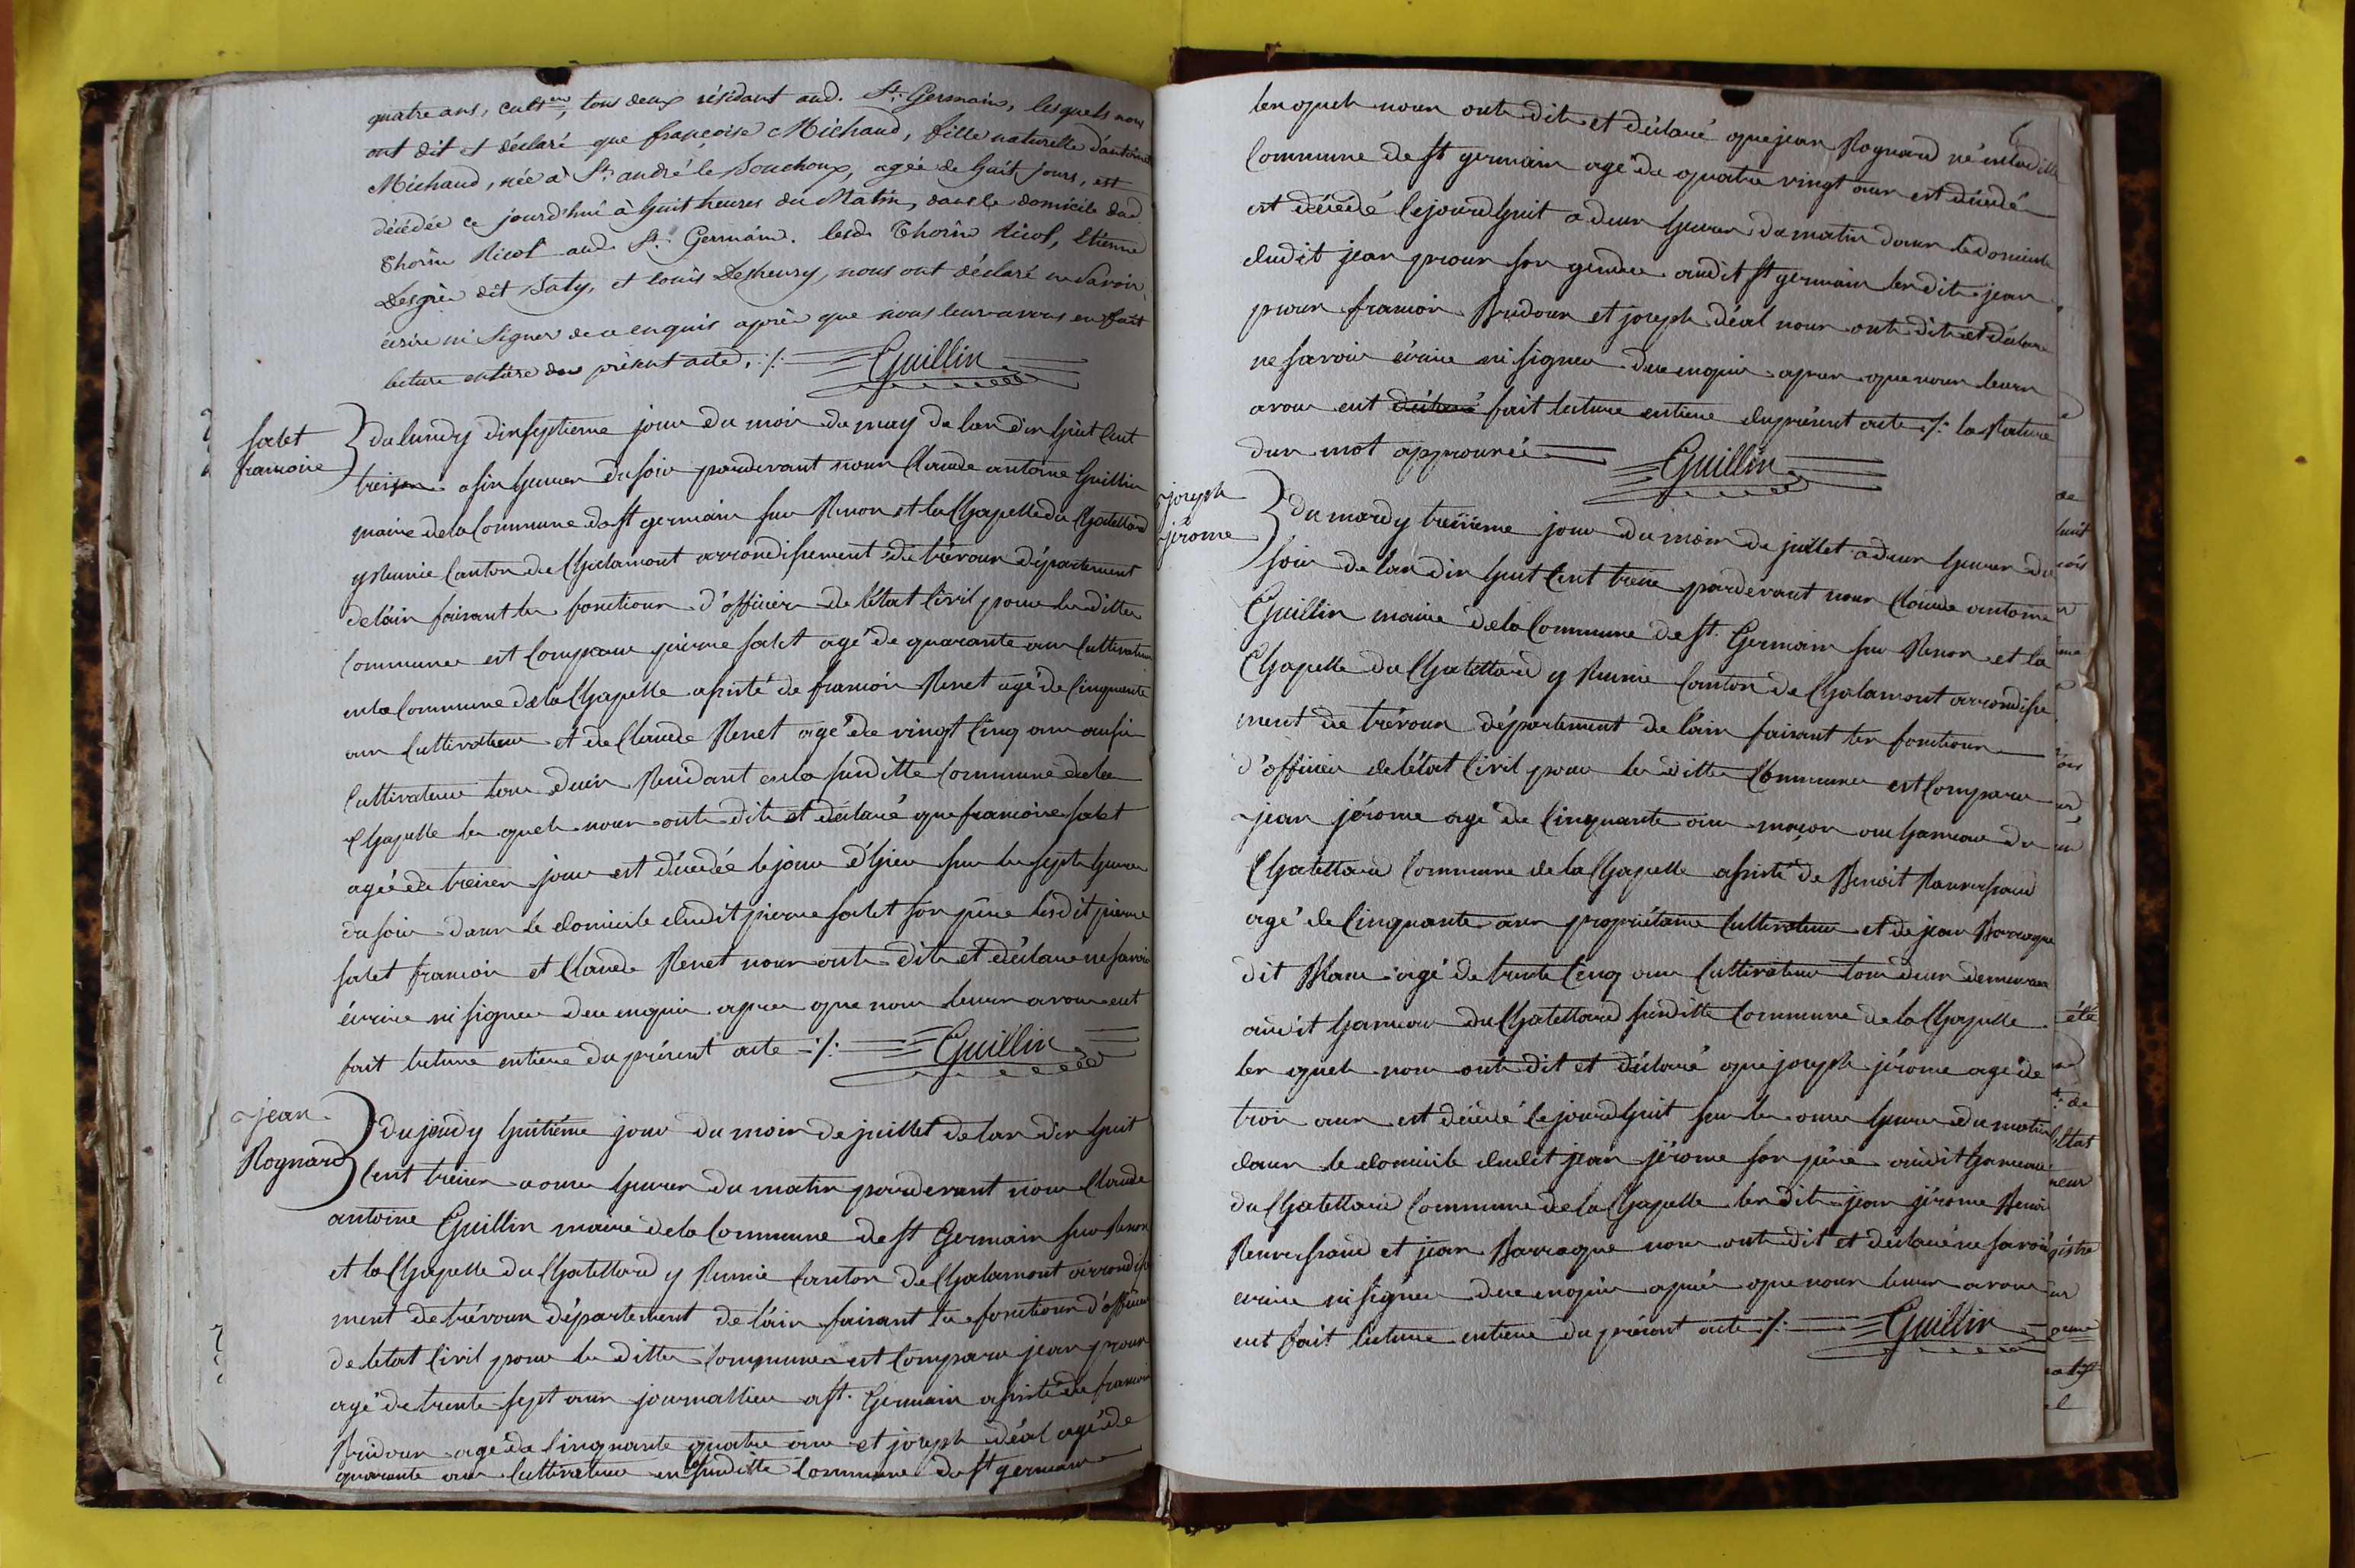 quatre ans, cult.eur, tous deux résidant aud. St. Germain, lesquels nous
ont dit et déclaré que françoise Michaud, fille naturelle d'antoinette
Michaud, née à St. andré le Bouchoux, agée de huit jours, est
décédée ce jourd'hui à huit heures du Matin, dans le domicile dud.
Thorin Nicol aud. St. Germain. lesd. Thorin Nicol, Etienne
Desgrè dit Saty, et louis Desheury, nous ont déclaré ne Savoir
écrire ni Signer de ce enquis après que nous leur avons eu fait
lecture entière du présent acte ./. Guillin
salet
francoise
du lundy dinseptieme jour du mois du may de lan din huit Cent
treizes a sin heures du soir pardevant nous Claude antoine Guillin
maire de la Commune de st germain sur Renon et la Chapelle du Chatellard
y Reunie Canton de Chalamont arrondissement de trévoux département
de l'ain faisant les fonctions d'officier de l'état Civil pour les dittes
Communes est Comparu pierre salet agé de quarante ans Cultivateur
en la Commune de la Chapelle assisté de francois Renet agé de Cinquante
ans Cultivateur et de Claude Renet agé de vingt Cinq ans aussi
Cultivateur tous deux Residant en la susditte Commune de la
Chapelle les quels nous ont dit et déclaré que francoise salet
agée de treizes jours est décédée le jour d'hier sur les sept heures
du soir dans le domicile dudit pierre salet son père lesdit pierre
salet francois et Claude Renet nous ont dit et déclaré ne savoir
écrire ni signer de ce enquis apres que nous leurs avons eut
fait lecture entiere du présent acte ./. Guillin
jean
Rognard
du jeudy huitième jour du mois de juillet de lan din huit
Cent treizes a onze heures du matin pardevant nous Claude
antoine Guillin maire de la Commune de st Germain sur Renon
et la Chapelle du Chatellard y Reunie Canton de Chalamont arrondisse
ment de trévoux département de l'ain faisant les fonctions d'officier
de létat Civil pour les dittes Communes est Comparu jean proux
agé de trente sept ans journallier a st. Germain assisté de francois
Bridoux agé de Cinquante quatre ans et joseph déal agé de
quarante ans Cultivateur en la susditte Commune de st germain
les quels nous ont dit et déclaré que jean Rognard né en laditte
Commune de st germain agé de quatre vingt ans est décédé
est décédé le jourdhuit a deux heures du matin dans le domicile
dudit jean proux son gendre audit st germain les dit jean
proux francois Bridoux et joseph déal nous ont dit et déclaré
ne savoir écrire ni signer de ce enquis apres que nous leurs
avons eut déclaré fait lecture entiere du présent acte ./. la Rature
dun mot approuvée Guillin
joseph
jérome
du mardy treizieme jour du mois de juillet a deux heures du
soir de lan din huit Cent treize pardevant nous Claude antoine
Guillin maire de la Commune de st. Germain sur Renon et la
Chapelle du Chatellard y Reunie Canton de Chalamont arrondisse
ment de trévoux département de l'ain faisant les fonctions
d'officier de létat Civil pour les dittes Communes est Comparu
jean jérome agé de Cinquante ans maçon au hameau du
Chatellard Commune de la Chapelle assisté de Benoit
agé de Cinquante ans propriétaire Cultivateur et de jean Barraque
dit Blanc agé de trente Cinq ans Cultivateur tous deux demeurant
audit hameau du Chatellard susditte Commune de la Chapelle
les quels nous ont dit et déclaré que joseph jérome agé de
trois ans est décédé le jourdhuit sur les onze heures du matin
dans le domicile dudit jean jérome son père audit hameau
du Chatellard Commune de la Chapelle les dit jean jérome Benoit
et jean Barraque nous ont dit et déclaré ne savoir
écrire ni signer de ce enquis après que nous leurs avons
eut fait lecture entiere du présent acte ./. Guillin